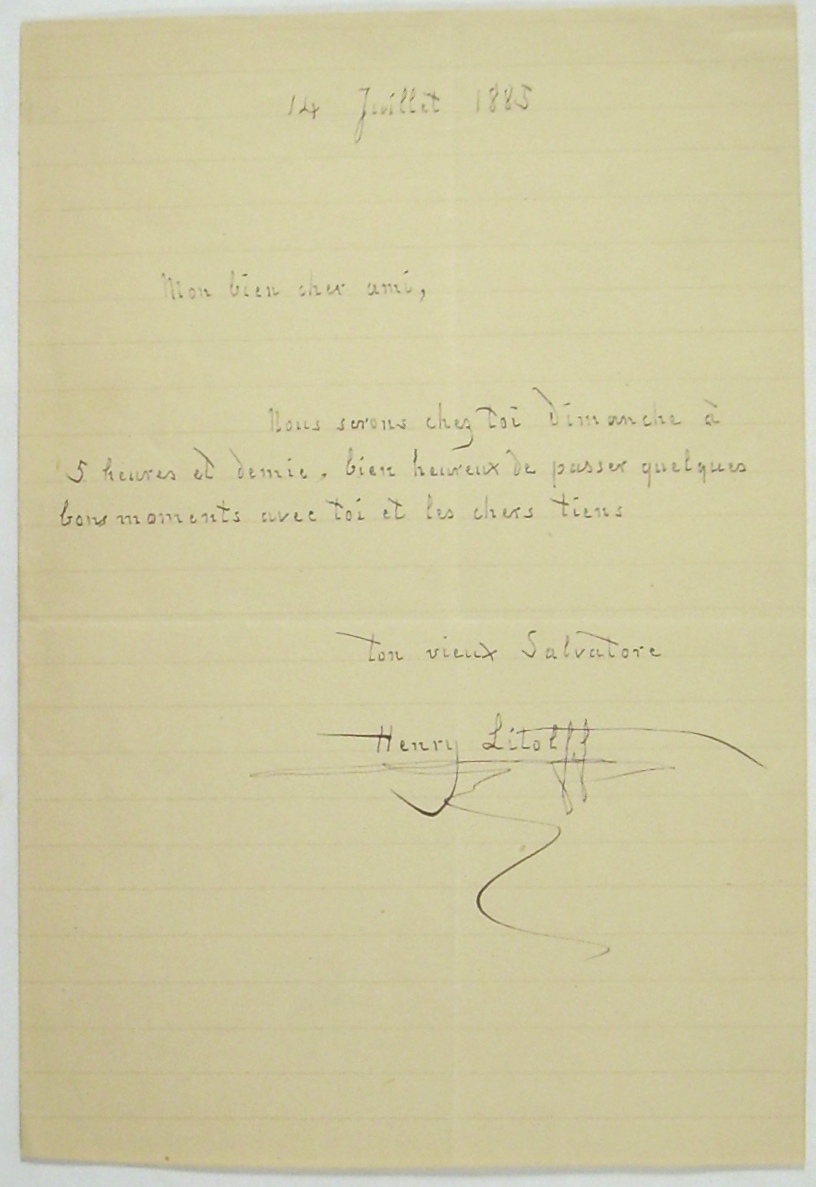 14 Juillet 1885
Mon bien cher ami,
Nous serons chez toi Dimanche à
5 heures et demie, bien heureux de passer quelques
bons moments avec toi et les chers tiens
ton vieux Salvatore
Henry Litolff